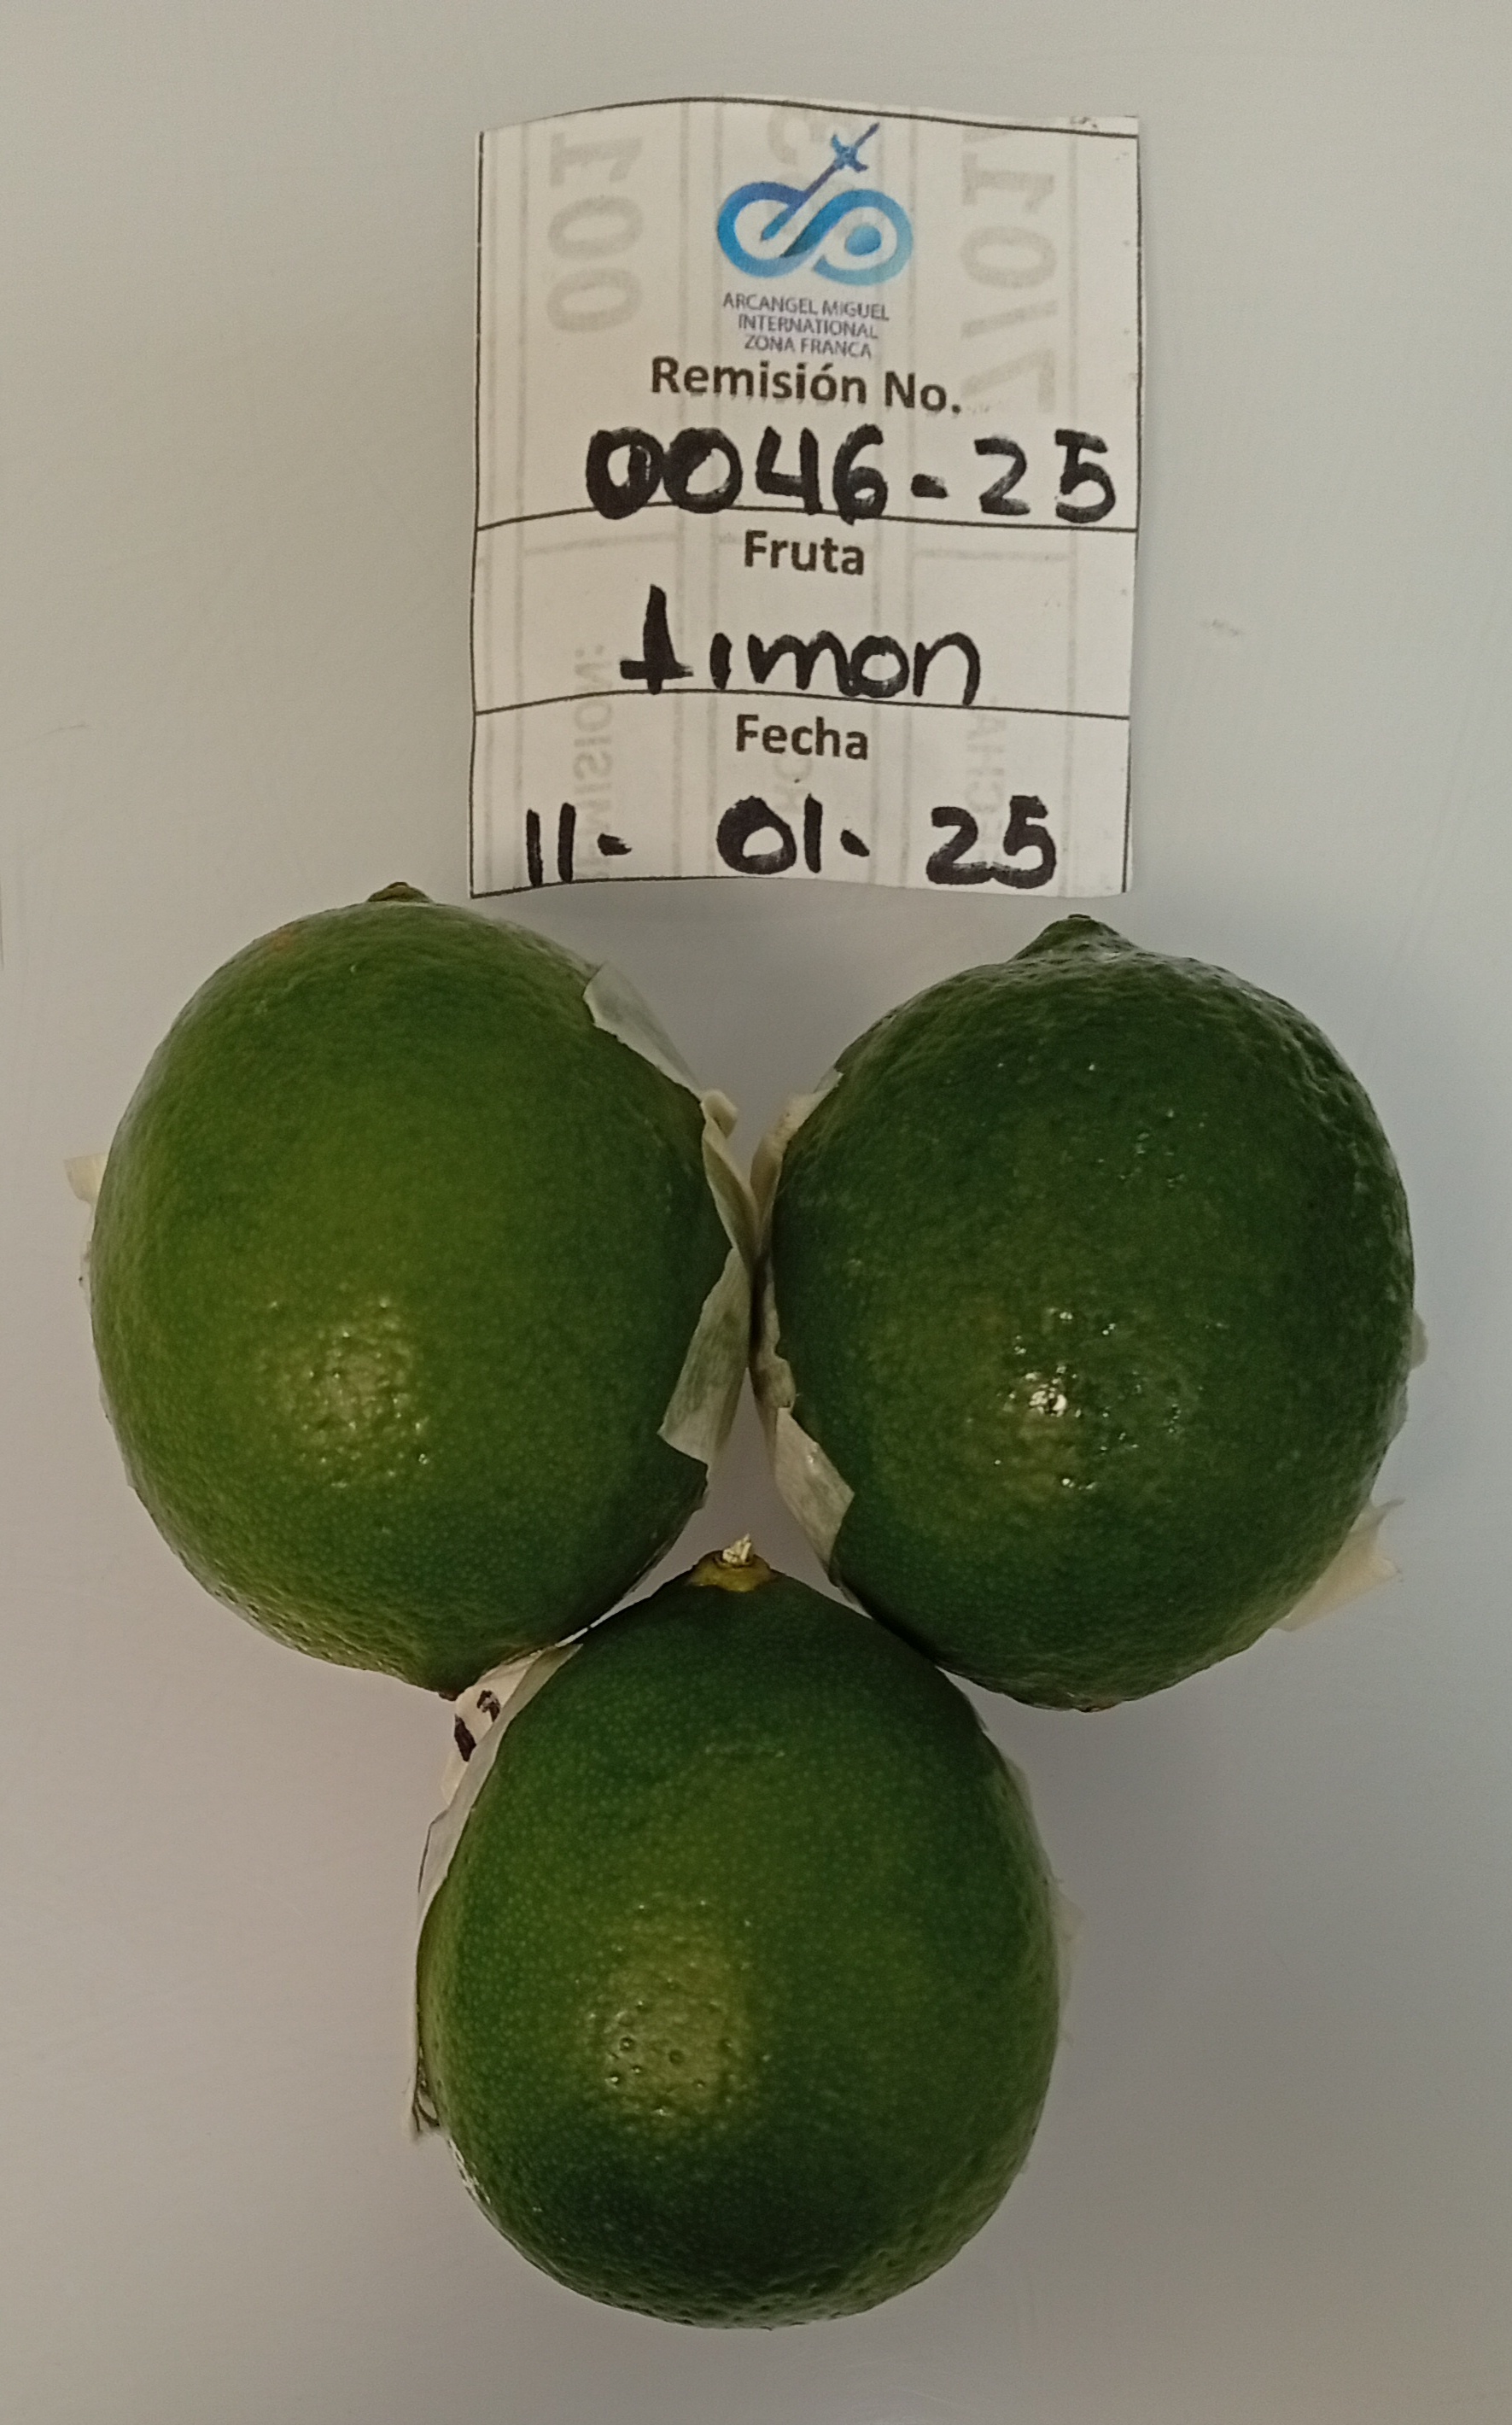 ARCANGEL MIGUEL
INTERNATIONAL
ZONA FRANCA
Remisión No.
0046-25
Fruta
Limon
Fecha
11- 01- 25